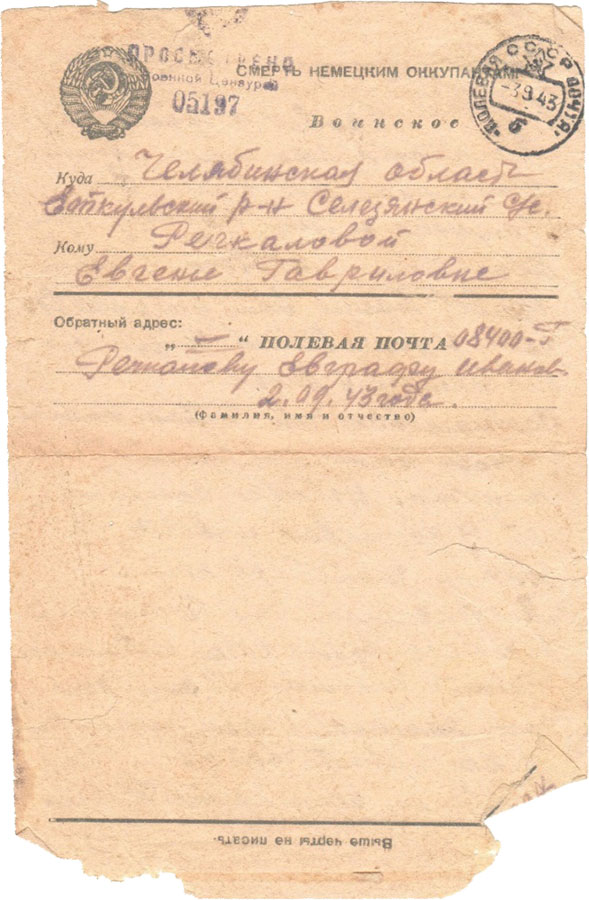 ПРОСМОТРЕНО
Военной Цензурой
05197
СМЕРТЬ НЕМЕЦКИМ ОККУПАНТАМ!
ПОЛЕВАЯ ПОЧТА
СССР
-3.9.43
б
Воинское
Куда Челябинская область
Еткульский р-н Селезянский с/с.
Кому Речкаловой
Евгение Гавриловне
Обратный адрес:
„ — “ ПОЛЕВАЯ ПОЧТА 08400-Г
Речкалову Евграфу Иванов
2.09.43 года.
(фамилия, имя и отчество)
Выше черты не писать.